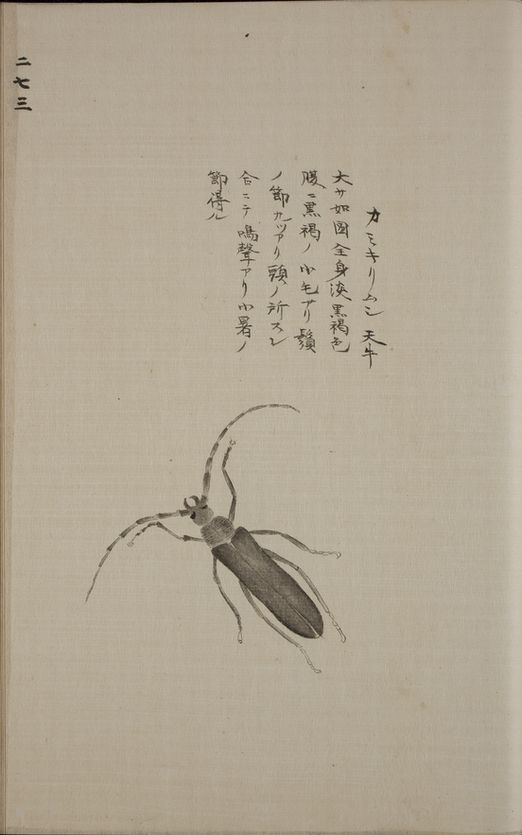 二七三
カミキリムシ 天牛
大サ如図全身淡黒褐色
腹ニ黒褐ノ小毛アリ鬚
ノ節九ツアリ頭ノ所スレ
合ニテ鳴聲アリ小暑ノ
節得ル